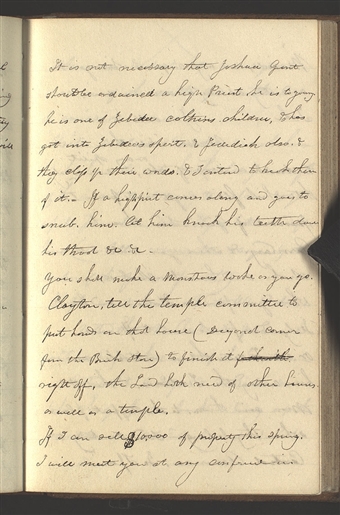 It is not necessary that Joshua Grant
should be ordained a high Priest he is to young
he is one of Zebedee coltrins children, & has
got into Zebedees spirit. & Jedediah also. &
they clip of their words. & I intend to break them
of it.- If a high priest comes along and goes to
snub him. let him knock his teeth down
his throat &c &c -
You shall make a monstrous wake as you go.
Clayton, tell the temple committee to
put hands on that house (Diagonal corner
from the Brick Store) to finish it
right off, the Lord hath need of other houses
as well as a temple.
If I can sell $10,000 of property this spring.
I will meet you at any conference in